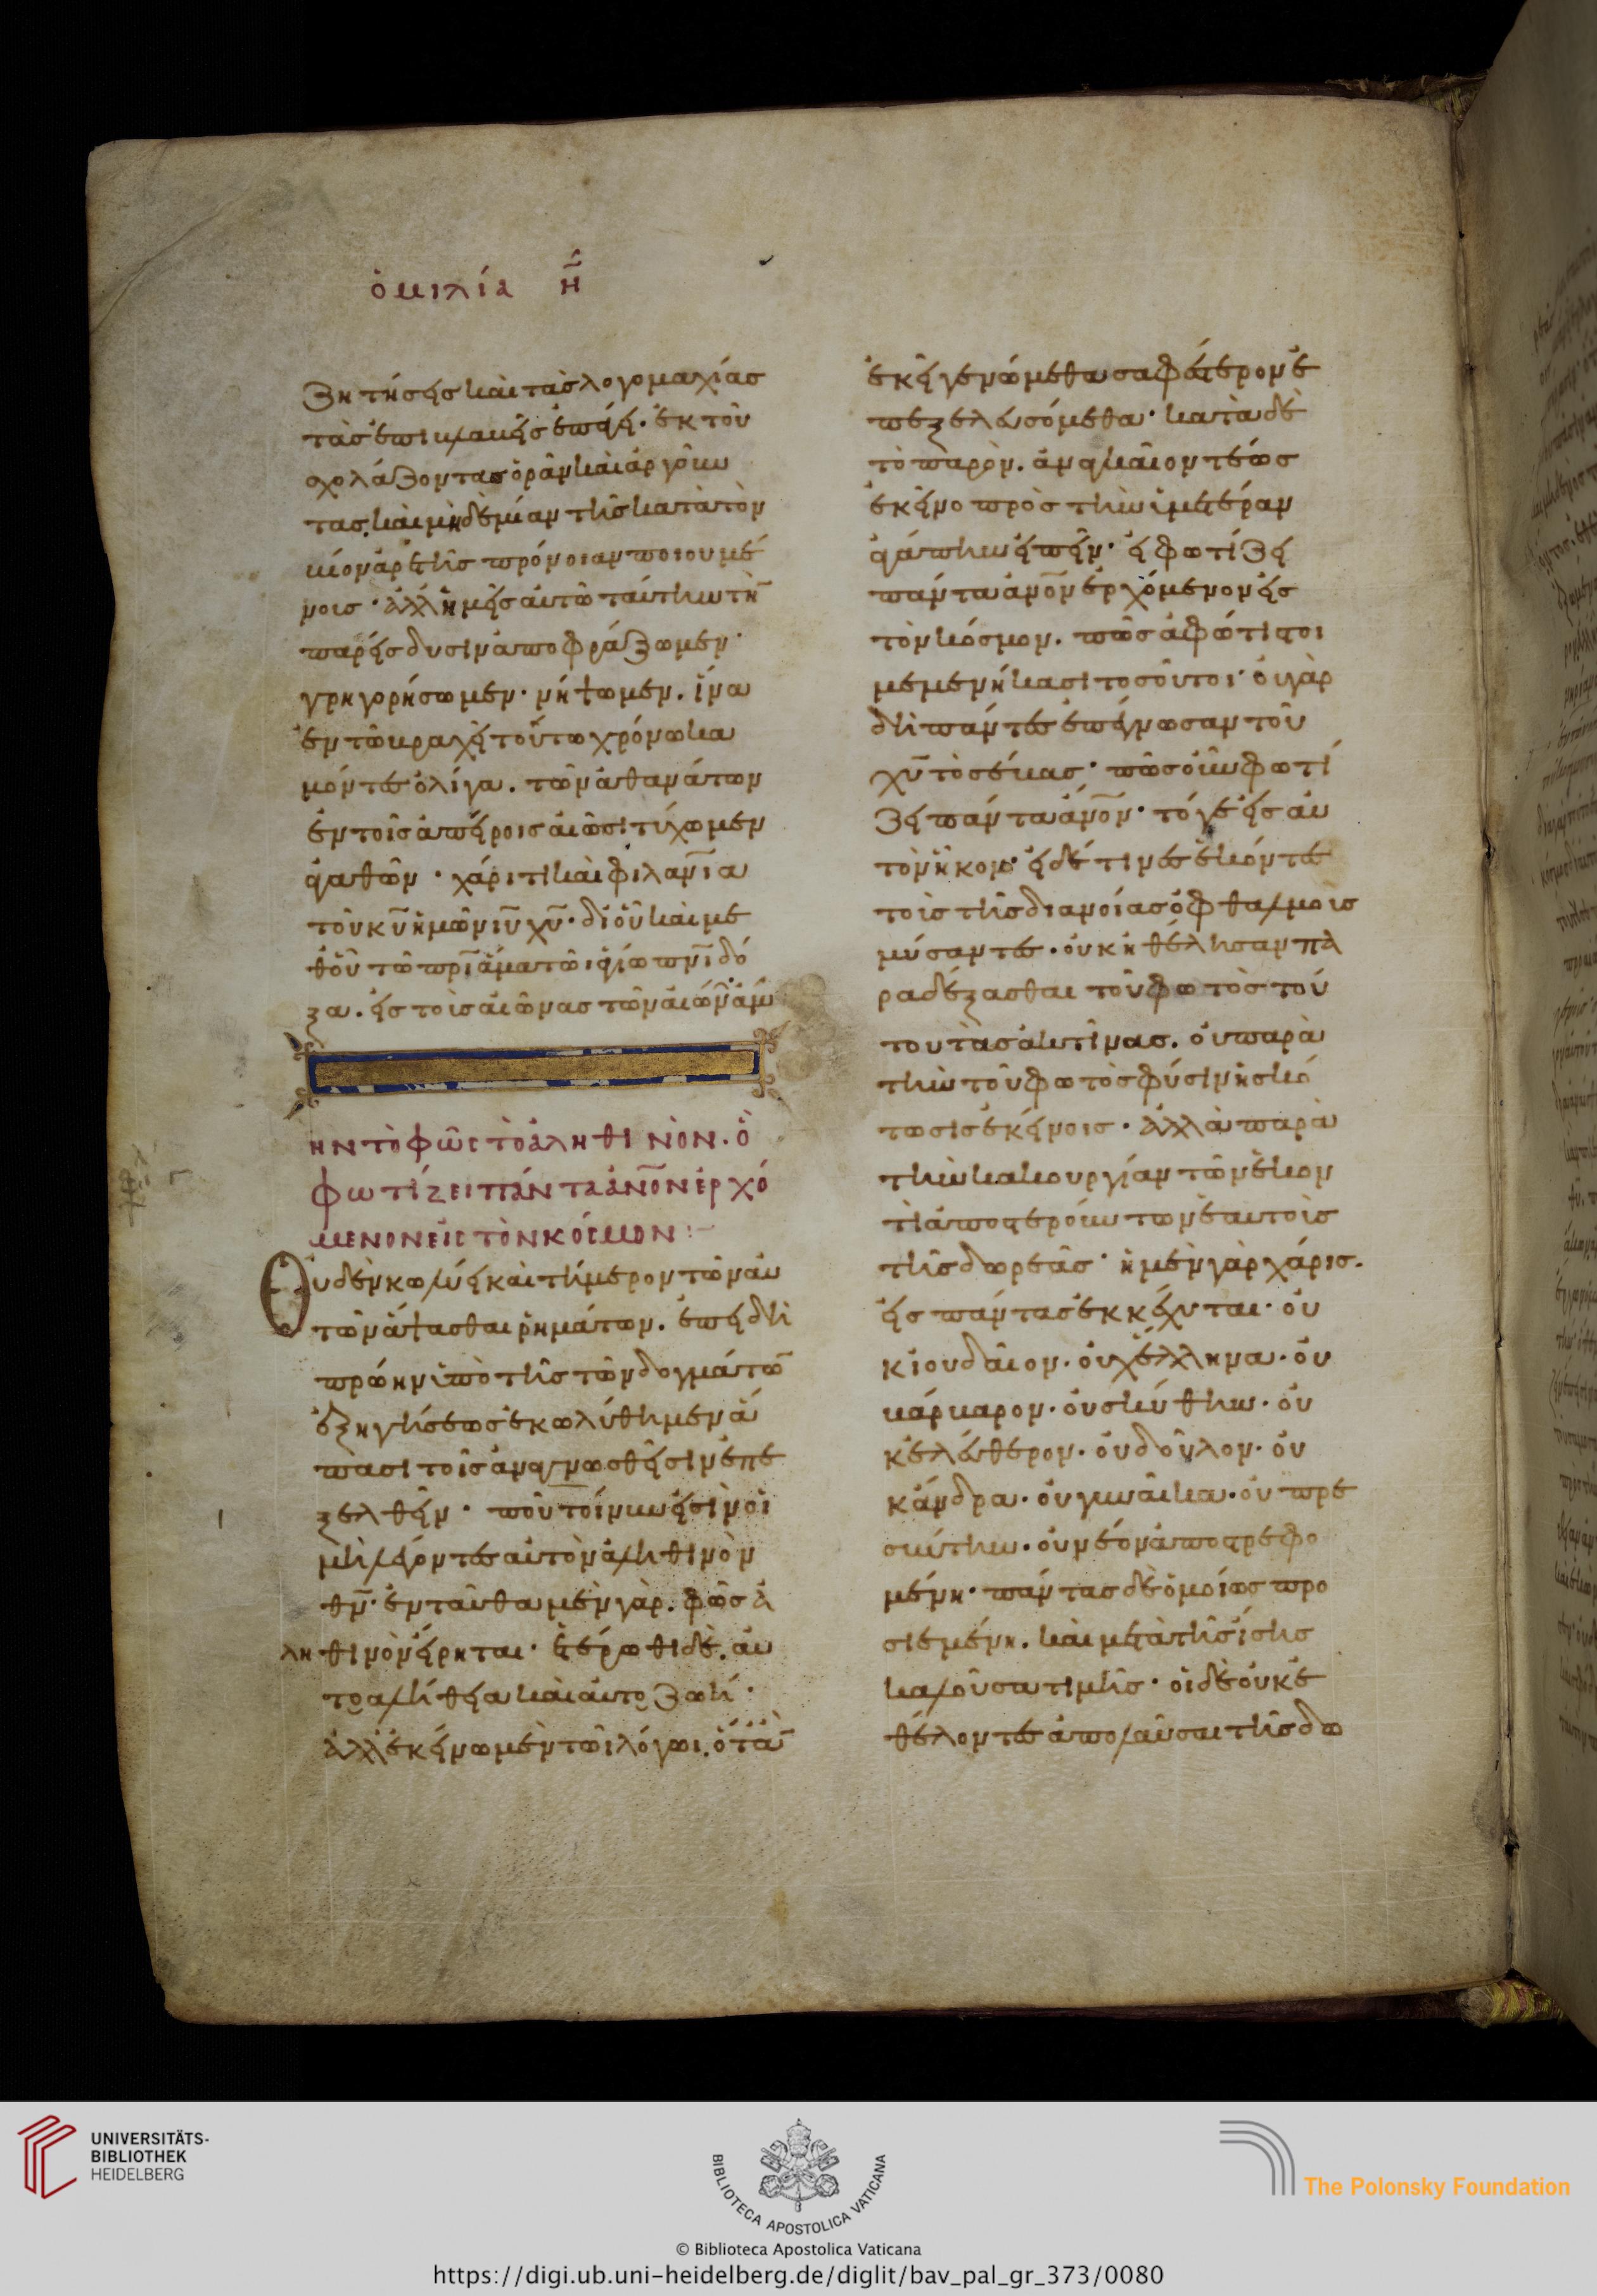 ὁμιλία η̅
ζητήσεις καὶ τὰς λογομαχίας
τὰς ἐπιβλαβεῖς ἐπάγει. ἐκ τοῦ
σχολάζοντας ὁρᾶν καὶ ἀργοῦν
τας, καὶ μηδεμίαν τῆς κατὰ τὸν
βίον ἀρετῆς πρόνοιαν ποιουμέ
νοις· ἀλλ' ἡμεῖς αὐτῶ ταύτην τὴ̅
παρείσδυσιν ἀποφράξωμεν·
γρηγορήσωμεν· νήψωμεν. ἵνα
ἐν τῶ βραχεῖ τούτω χρόνω κα
μόντες ὀλίγα. τῶν ἀθανάτων
ἐν τοῖς ἀπείροις αἰῶσι τύχωμεν
ἀγαθῶν· χάριτι καὶ φιλαν̅ία
τοῦ κ̅υ̅ ἡμῶν ι̅υ̅ χ̅υ̅· δι' οὗ καὶ με
θ' οὗ τῶ π̅ρ̅ι̅ ἅμα τῶι ἁγίω π̅ν̅ι̅ δό
ξα. εἰς τοὺς αἰῶνας τῶν αἰών̅ ἀμή̅
ην τὸ φῶς τὸ ἀληθινὸν. ὃ
φωτίζει πάντα ἄν̅ο̅ν̅ ἐρχό
μενον εἰς τὸν κόσμον:
Οὐδὲν κωλύει καὶ τήμερον τῶν αὐ
τῶν ἅψασθαι ῥημάτων. ἐπειδὴ
πρώην ὑπὸ τῆς τῶν δογμάτω̅
ἐξηγήσεως ἐκωλύθημεν ἅ
πασι τοῖς ἀναγνωσθεῖσιν ἐπε
ξελθεῖν· ποῦ τοίνυν εἰσὶν οἱ
μὴ λέγοντες αὐτὸν ἀληθινὸν
θ̅ν̅· ἐνταῦθα μὲν γὰρ. φῶς ἀ
ληθινὸν εἴρηται· ἑτέρωθι δὲ. αὐ
τοαλήθεια καὶ αὐτοζωή·
ἀλλ' ἐκείνω μὲν τῶι λόγωι. ὅτα̅
ἐκεῖ γενώμεθα σαφέστερον ἐ
πεξελευσόμεθα· κατὰ δὲ
τὸ παρὸν. ἀναγκαῖον τέως
ἐκεῖνο πρὸς τὴν ὑμετέραν
ἀγάπην εἰπεῖν· εἰ φωτίζει
πάντα ἄν̅ο̅ν̅ ἐρχόμενον εἰς
τὸν κόσμον. πῶς ἀφώτιστοι
μεμενήκασι τοσοῦτοι· οὐ γὰρ
δὴ πάντες ἐπέγνωσαν τοῦ
χ̅υ̅ τὸ σέβας· πῶς οὖν φωτί
ζει πάντα ἄν̅ο̅ν̅· τό γε εἰς αὐ
τὸν ἧκον· εἰ δέ τινες ἑκόντες
τοὺς τῆς διανοίας ὀφθαλμοὺς
μύσαντες. οὐκ ἠθέλησαν πα
ραδέξασθαι τοῦ φωτὸς τού
του τὰς ἀκτῖνας. οὐ παρὰ
τὴν τοῦ φωτὸς φύσιν ἡ σκό
τωσις ἐκείνοις· ἀλλὰ παρὰ
τὴν κακουργίαν τῶν ἑκον
τὶ ἀποστερούντων ἑαυτοὺς
τῆς δωρεᾶς· ἡ μὲν γὰρ χάρις.
εἰς πάντας ἐκκέχυται· οὐ
κ ἰουδαῖον. οὐχ ἕλληνα. οὐ
βάρβαρον. οὐ σκύθην. οὐ
κ ἐλεύθερον. οὐ δοῦλον. οὐ
κ ἄνδρα. οὐ γυναῖκα. οὐ πρε
σβύτην. οὐ νέον ἀποστρεφο
μένη· πάντας δὲ ὁμοίως προ
σιεμένη. καὶ μετὰ τῆς ἴσης
καλοῦσα τιμῆς· οἱ δὲ οὐκ ἐ
θέλοντες ἀπολαῦσαι τῆς δω
UNIVERSITÄTS-
BIBLIOTHEK
HEIDELBERG
BIBLIOTECA APOSTOLICA VATICANA
© Biblioteca Apostolica Vaticana
The Polonsky Foundation
https://digi.ub.uni-heidelberg.de/diglit/bav_pal_gr_373/0080